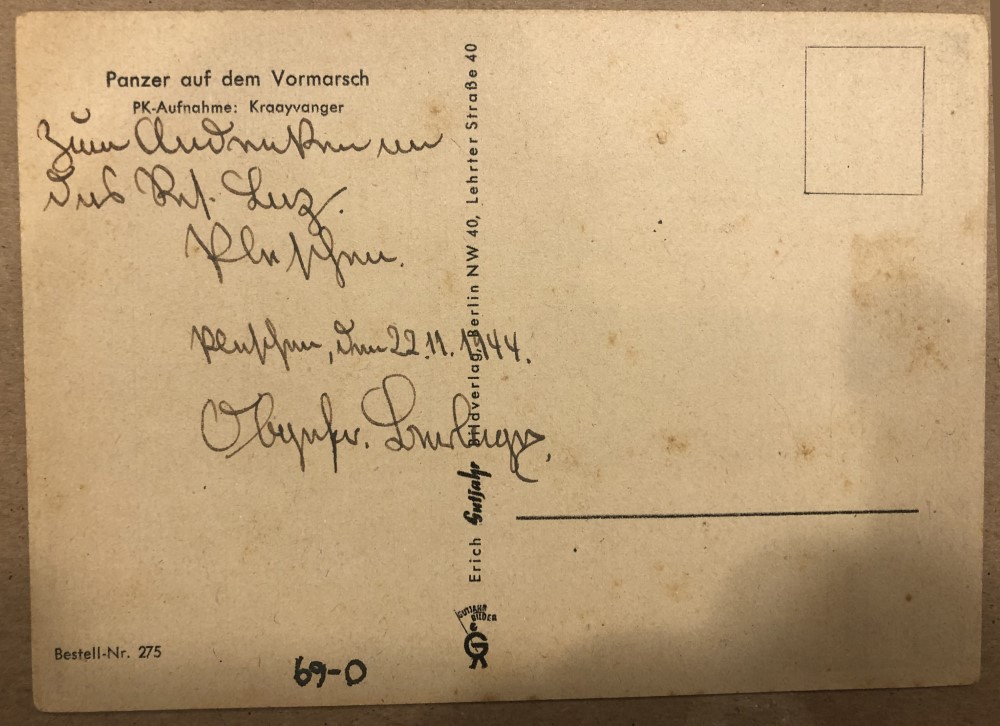 Panzer auf dem Vormarsch
PK-Aufnahme: Kraayvanger
Zum Andenken an
das Res. Laz.
Pleschen.
Pleschen, den 22.11.1944.
Obgefr.
Bestell-Nr. 275
69-0
Erich Gutjahr Bildverlag, Berlin NW 40, Lehrter Straße 40
GUTJAHR
BILDER